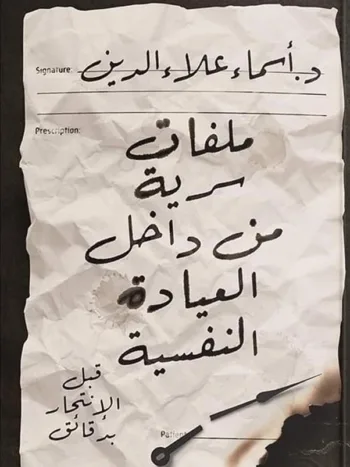 Signature:
د. أسماء علاء الدين
Prescription:
ملفات
سرية
من داخل
العيادة
النفسية
قبل
الإنتحار
بدقائق
Patient